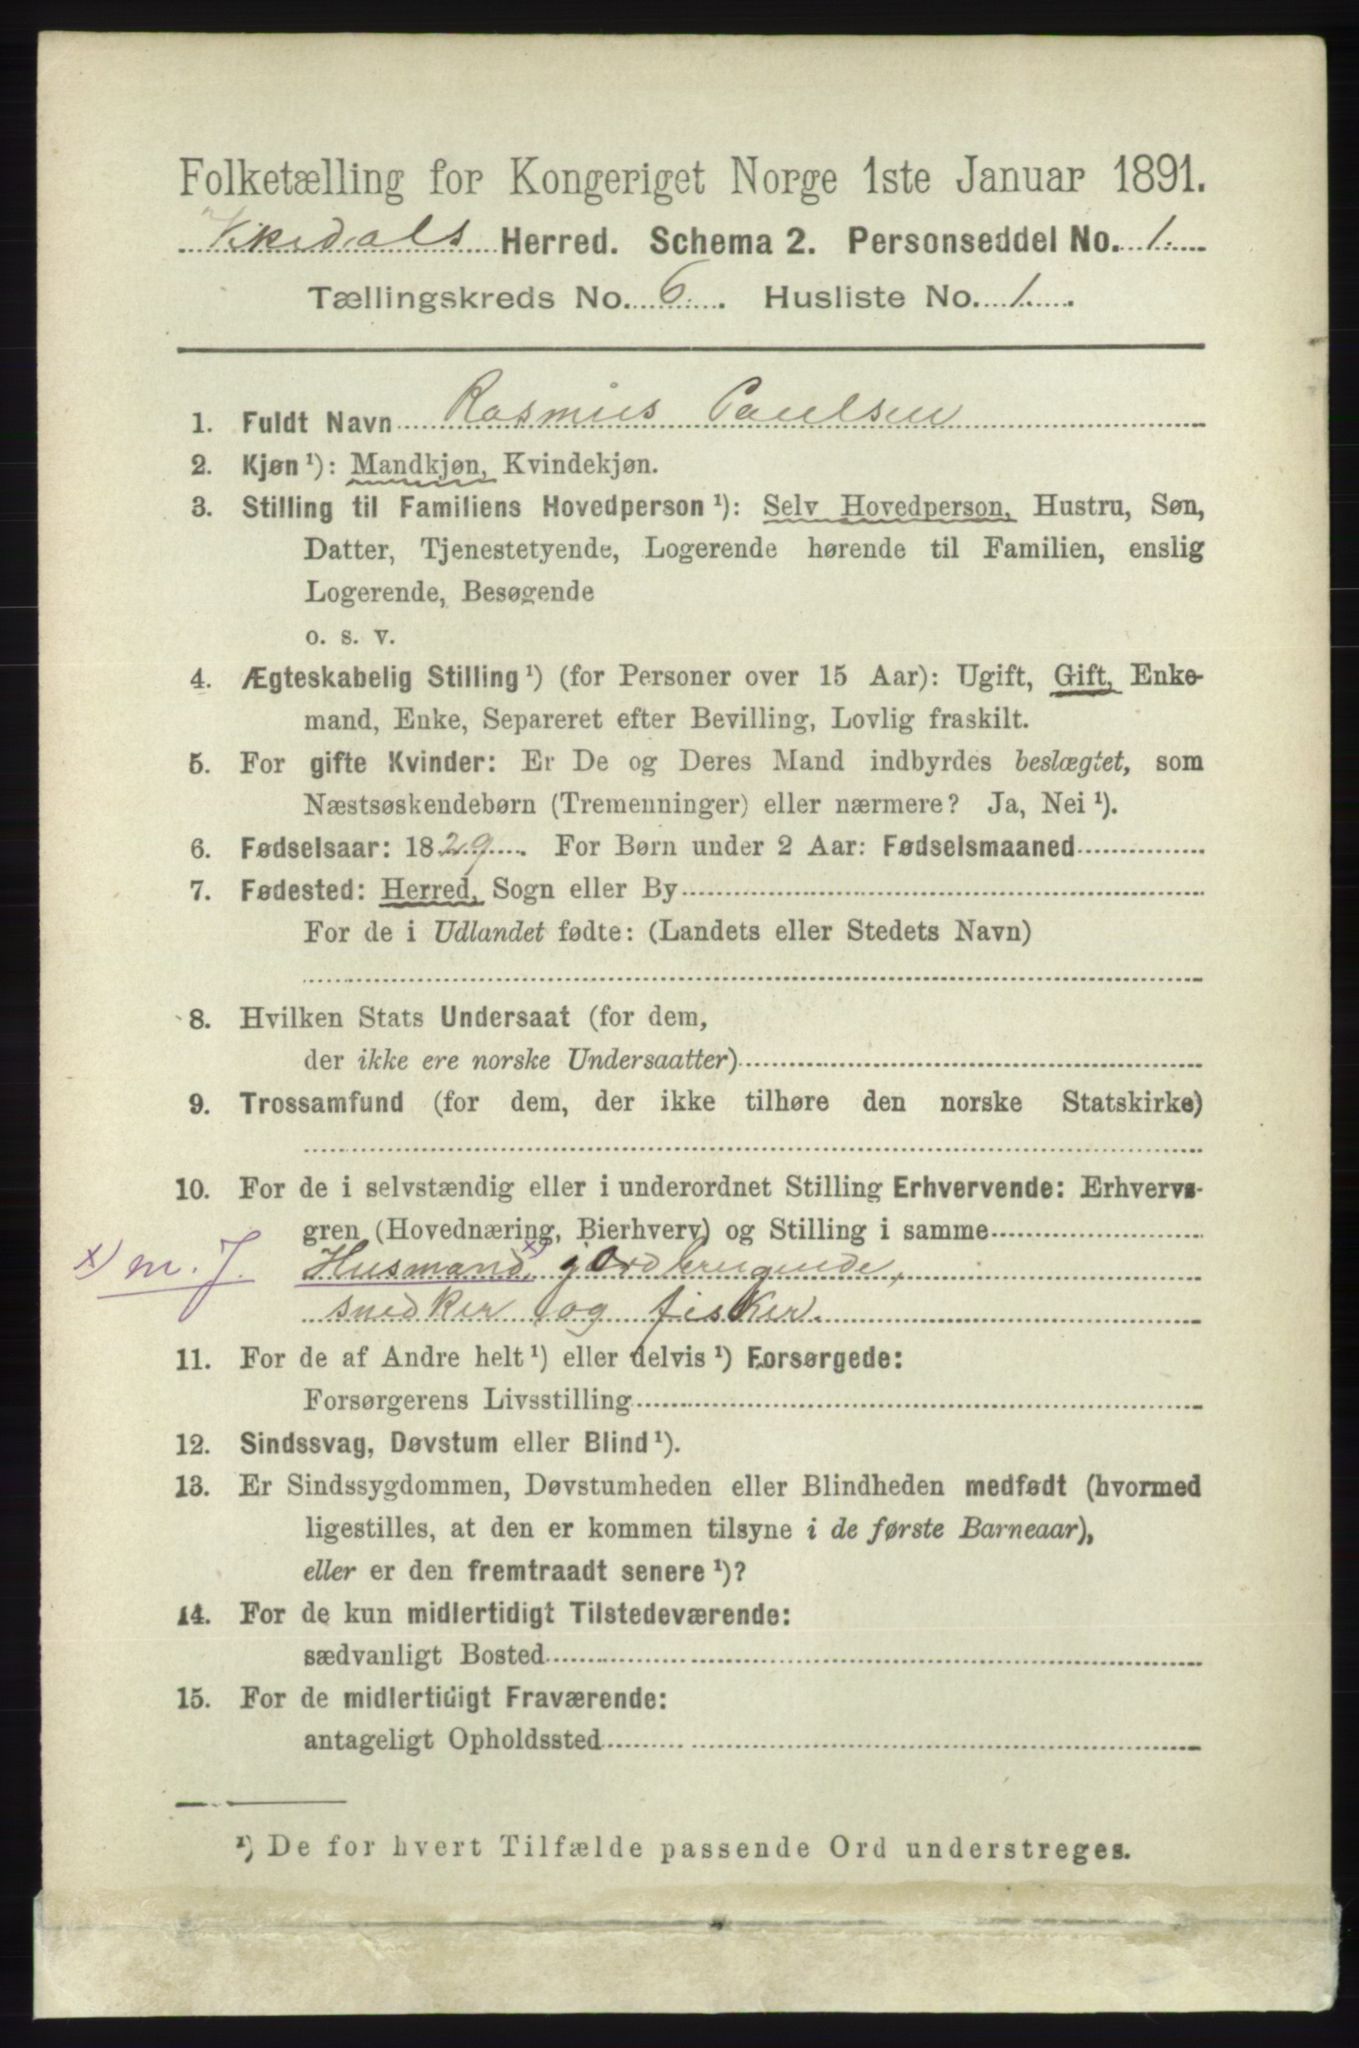 Folketælling for Kongeriget Norge 1ste Januar 1891.
Vikedals Herred. Schema 2. Personseddel No. 1.
Tællingskreds No. 6. Husliste No. 1.
1. Fuldt Navn Rasmus Paulsen
2. Kjøn¹): Mandkjøn, Kvindekjøn.
3. Stilling til Familiens Hovedperson¹): Selv Hovedperson, Hustru, Søn,
Datter, Tjenestetyende, Logerende hørende til Familien, enslig
Logerende, Besøgende
o. s. v.
4. Ægteskabelig Stilling¹) (for Personer over 15 Aar): Ugift, Gift, Enke-
mand, Enke, Separeret efter Bevilling, Lovlig fraskilt.
5. For gifte Kvinder: Er De og Deres Mand indbyrdes beslægtet, som
Næstsøskendebørn (Tremenninger) eller nærmere? Ja, Nei¹).
6. Fødselsaar: 1829. For Børn under 2 Aar: Fødselsmaaned
7. Fødested: Herred, Sogn eller By
For de i Udlandet fødte: (Landets eller Stedets Navn)
8. Hvilken Stats Undersaat (for dem,
der ikke ere norske Undersaatter)
9. Trossamfund (for dem, der ikke tilhøre den norske Statskirke)
10. For de i selvstændig eller i underordnet Stilling Erhvervende: Erhvervs-
gren (Hovednæring, Bierhverv) og Stilling i samme
x) m. J. Husmand x) jordbrugende,
snedker og fisker.
11. For de af Andre helt¹) eller delvis¹) Forsørgede:
Forsørgerens Livsstilling
12. Sindssvag, Døvstum eller Blind¹).
13. Er Sindssygdommen, Døvstumheden eller Blindheden medfødt (hvormed
ligestilles, at den er kommen tilsyne i de første Barneaar),
eller er den fremtraadt senere¹)?
14. For de kun midlertidigt Tilstedeværende:
sædvanligt Bosted
15. For de midlertidigt Fraværende:
antageligt Opholdssted
¹) De for hvert Tilfælde passende Ord understreges.